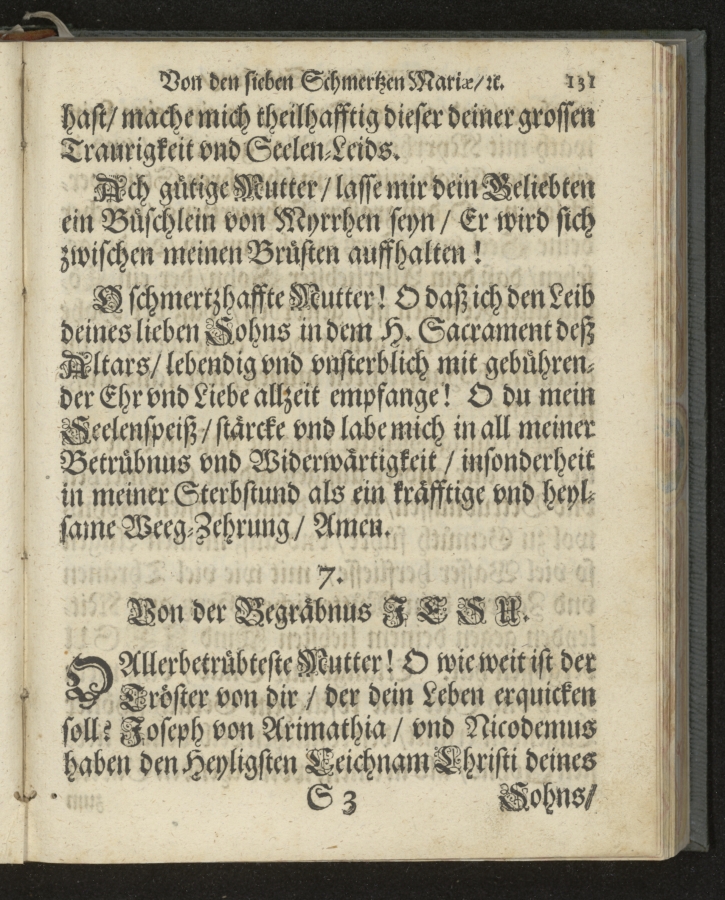 Von den sieben Schmertzen Mariæ/ ꝛc. 131
hast/ mache mich theilhafftig dieser deiner grossen
Traurigkeit vnd Seelen-Leids.
Ach gütige Mutter / lasse mir dein Beliebten
ein Büschlein von Myrrhen seyn / Er wird sich
zwischen meinen Brüsten auffhalten !
O schmertzhaffte Mutter! O daß ich den Leib
deines lieben Sohns in dem H. Sacrament deß
Altars/ lebendig vnd vnsterblich mit gebühren-
der Ehr vnd Liebe allzeit empfange! O du mein
Seelenspeiß / stärcke vnd labe mich in all meiner
Betrübnus vnd Widerwärtigkeit / insonderheit
in meiner Sterbstund als ein kräfftige vnd heyl-
same Weeg-Zehrung / Amen.
7.
Von der Begräbnus JESU.
O Allerbetrübteste Mutter! O wie weit ist der
Tröster von dir / der dein Leben erquicken
soll? Joseph von Arimathia / vnd Nicodemus
haben den Heyligsten Leichnam Christi deines
S 3 Sohns/